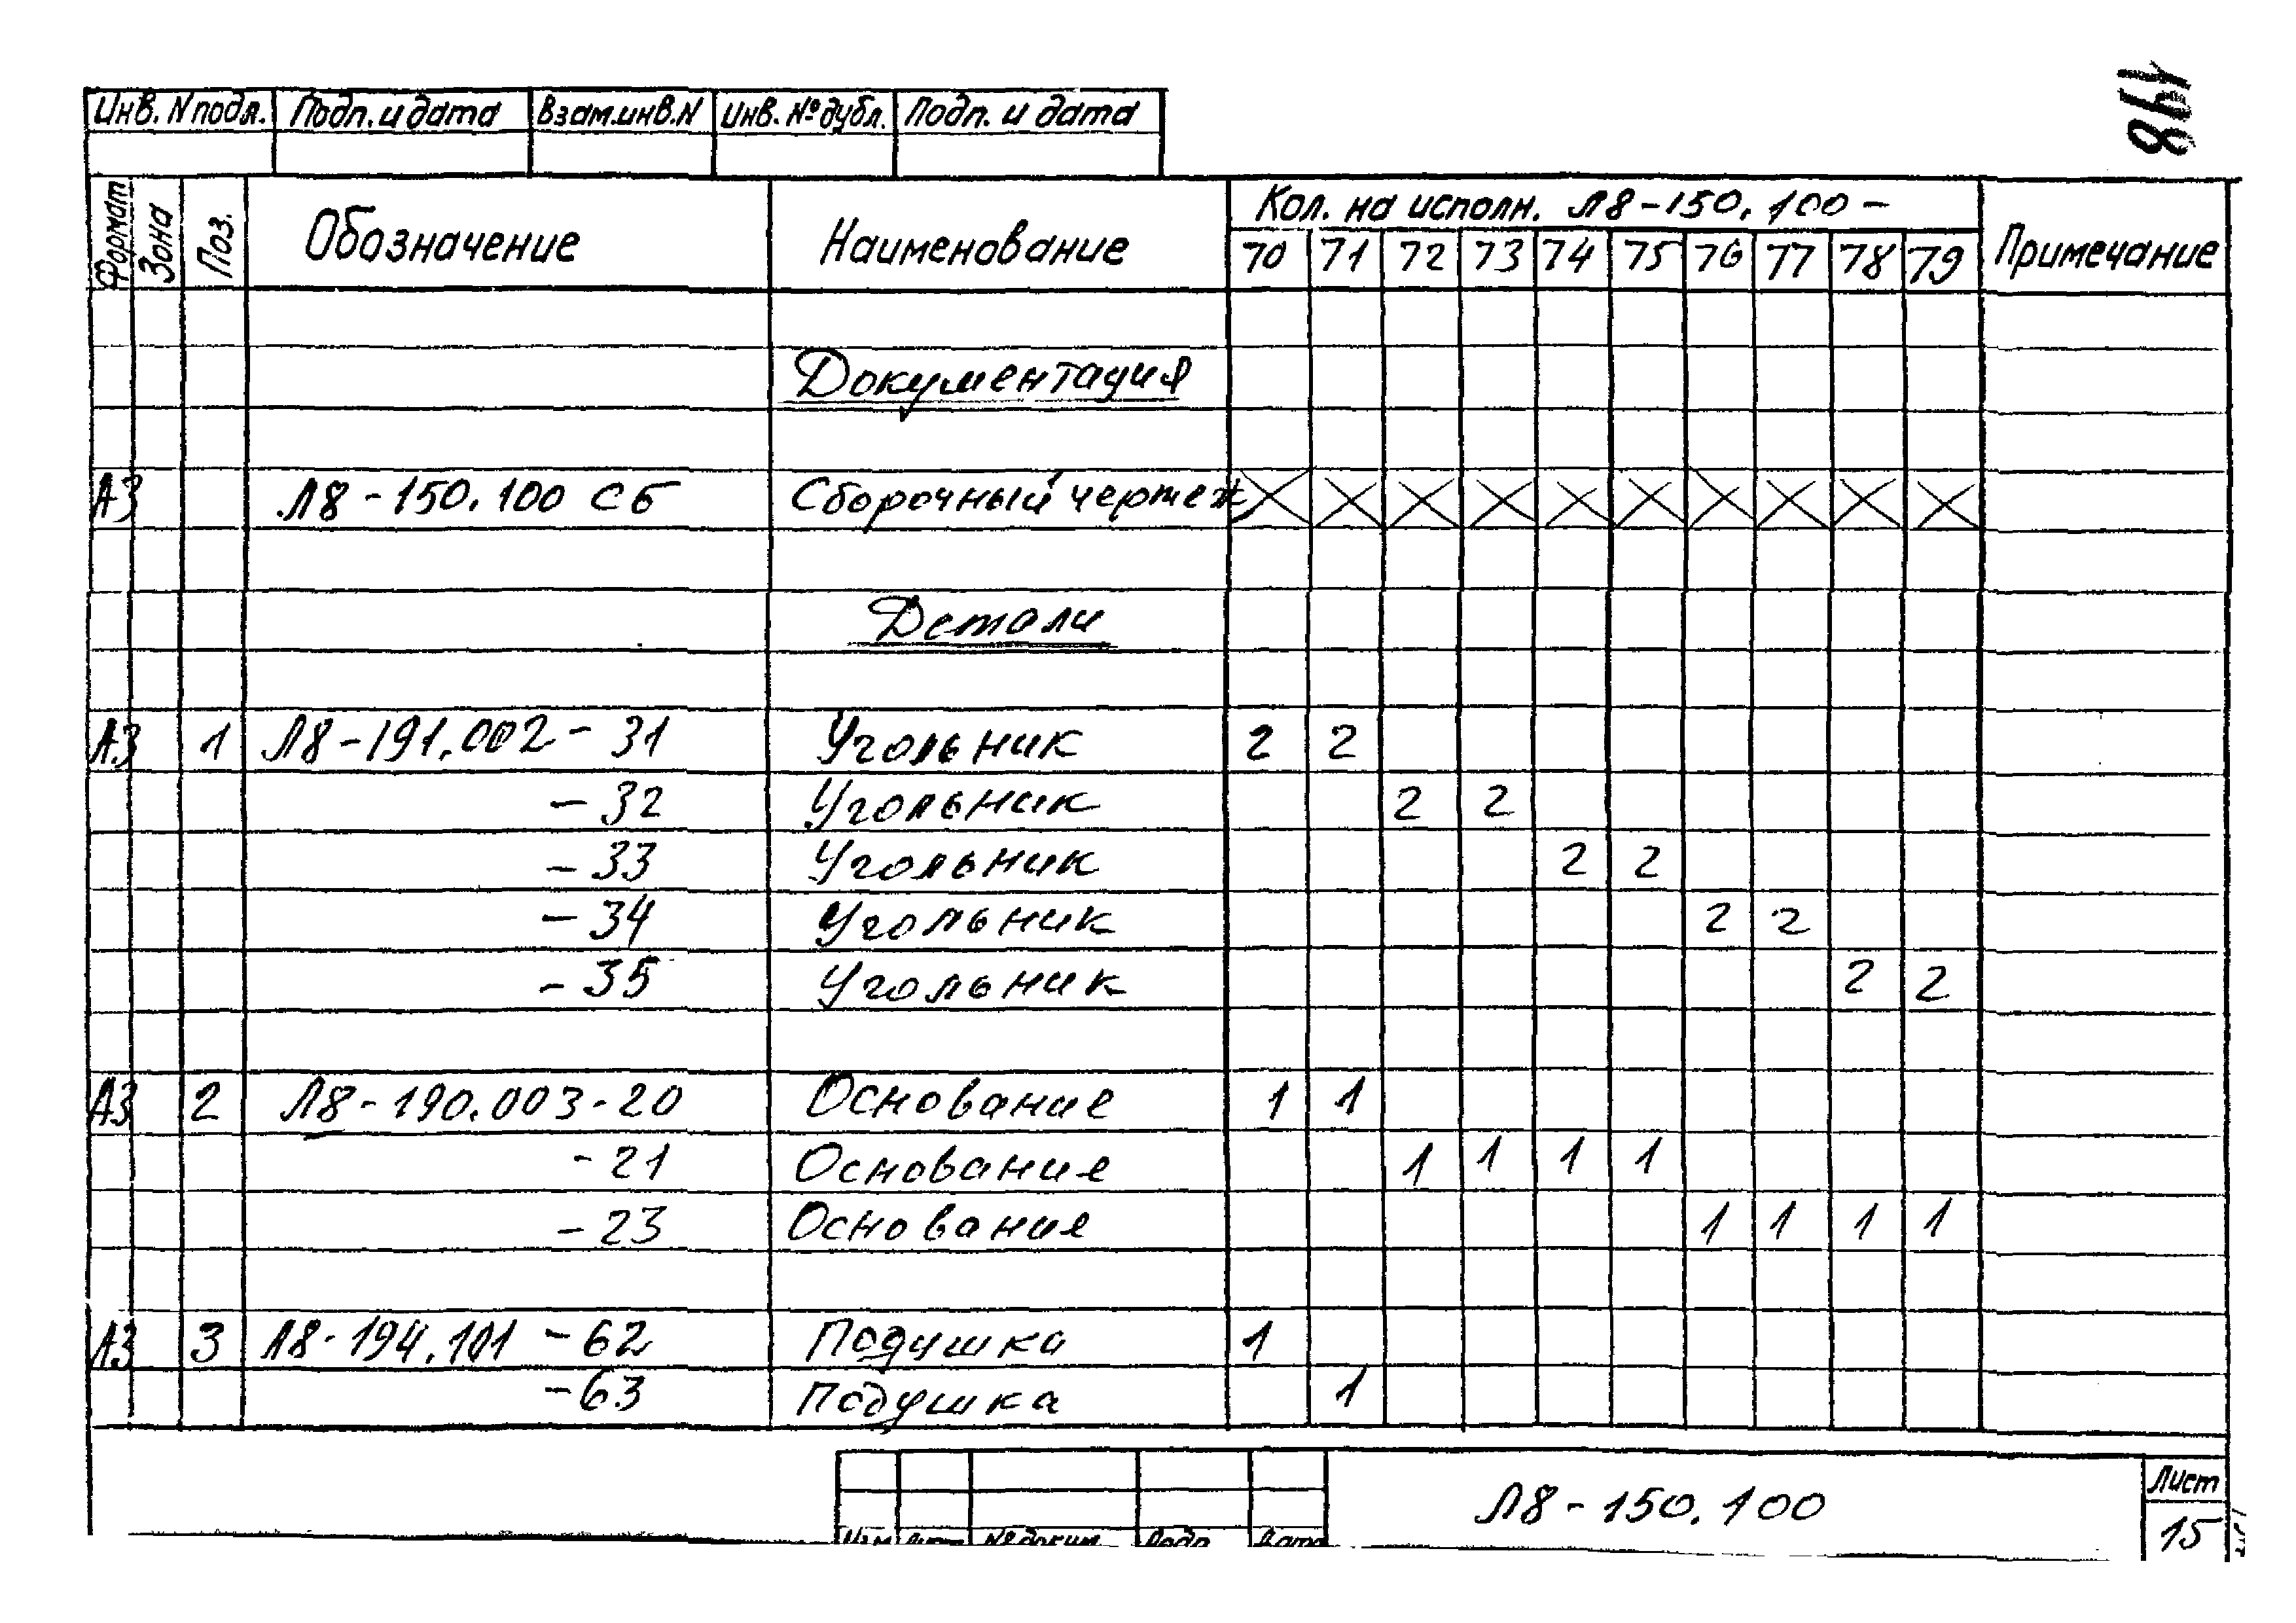 Инв. N подл. Подп. и дата Взам.инв.N Инв. № дубл. Подп. и дата
Формат Зона Поз. Обозначение Наименование Кол. на исполн. Л8-150.100- Примечание
70 71 72 73 74 75 76 77 78 79
Документация
А3 Л8-150.100 СБ Сборочный чертеж
Детали
А3 1 Л8-191.002-31 Угольник 2 2
-32 Угольник 2 2
-33 Угольник 2 2
-34 Угольник 2 2
-35 Угольник 2 2
А3 2 Л8-190.003-20 Основание 1 1
-21 Основание 1 1 1 1
-23 Основание 1 1 1 1
А3 3 Л8-194.101-62 Подушка 1
-63 Подушка 1
Л8-150.100
Лист
15
Изм Лист № докум. Подп. Дата